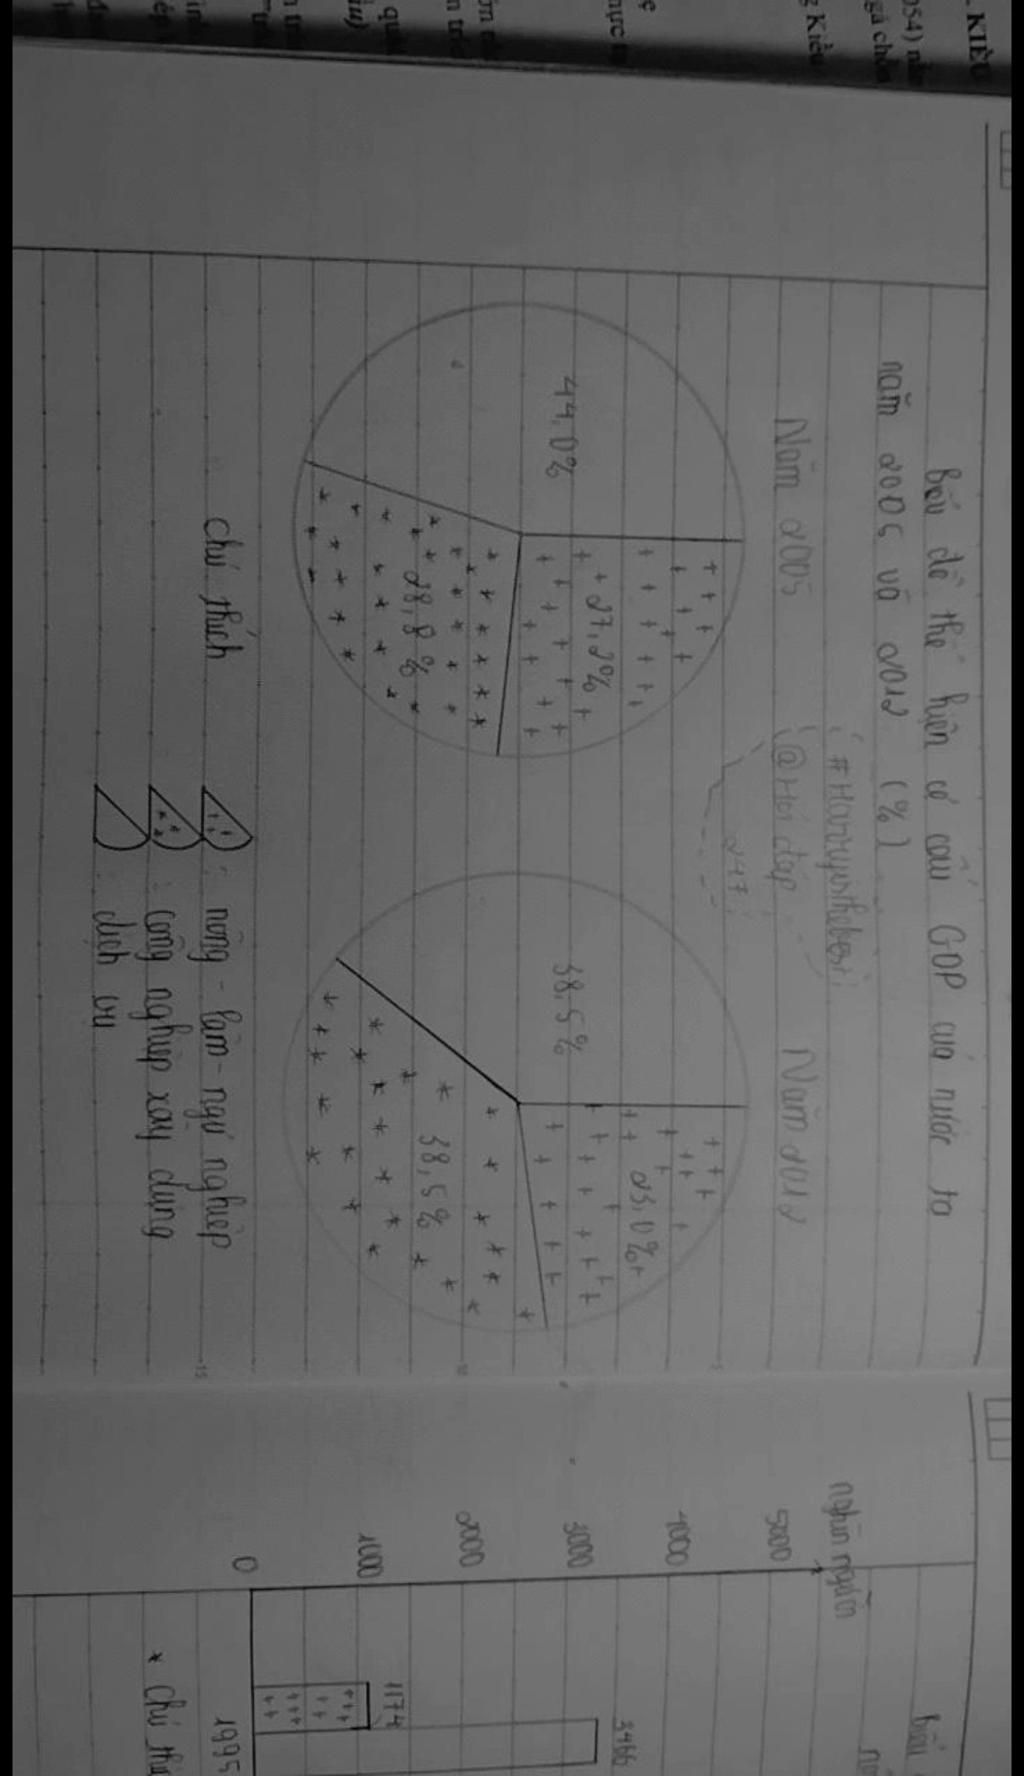 KIỀU
Biểu đồ thể hiện cơ cấu GDP của nước ta
năm 2005 và 2012 (%)
#Harryisthebest
@Hoidap
247
Năm 2005
Năm 2012
44,0%
27,2%
28,8%
38,5%
23,0%
38,5%
chú thích
: nông - lâm - ngư nghiệp
: công nghiệp xây dựng
: dịch vụ
Biểu
nghìn người
5000
4000
3000
2000
1000
0
1174
3466
1995
* chú thí